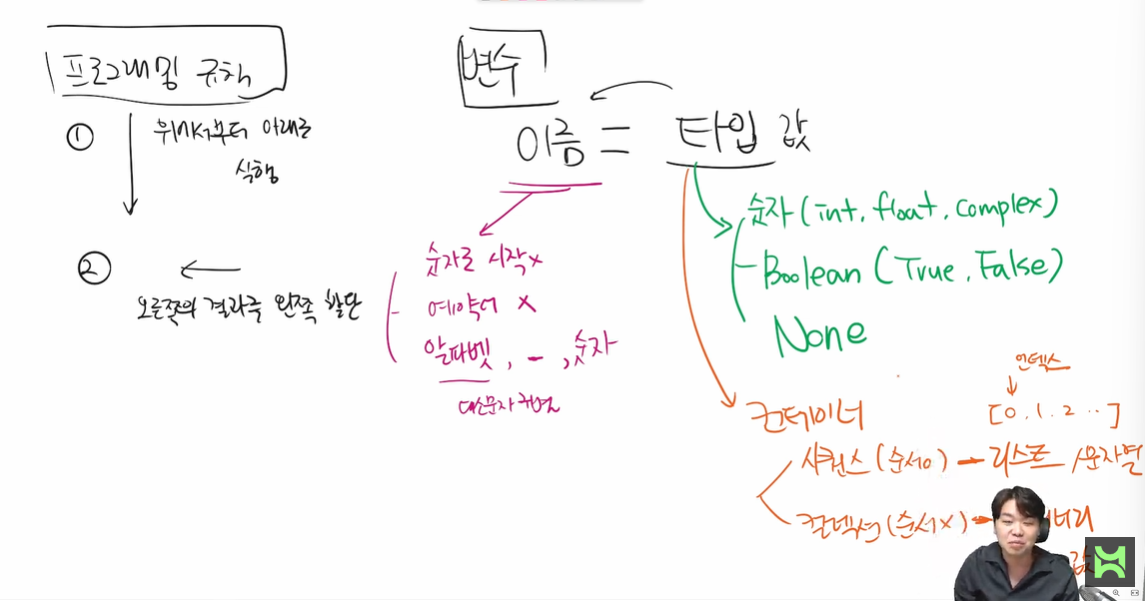 프로그래밍 규칙
① 위에서부터 아래로
실행
② ←
오른쪽의 결과를 왼쪽 할당
변수
이름 = 타입 값
숫자로 시작 x
예약어 x
알파벳, _, 숫자
대소문자 구별
숫자 (int, float, complex)
Boolean (True, False)
None
컨테이너
인덱스
[0, 1, 2 ..]
시퀀스 (순서o) - 리스트 / 문자열
컬렉션 (순서x) -
값